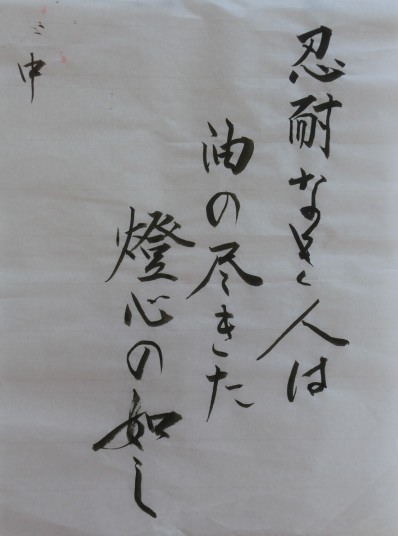 忍耐なき人は
油の尽きた
燈心の如し
中